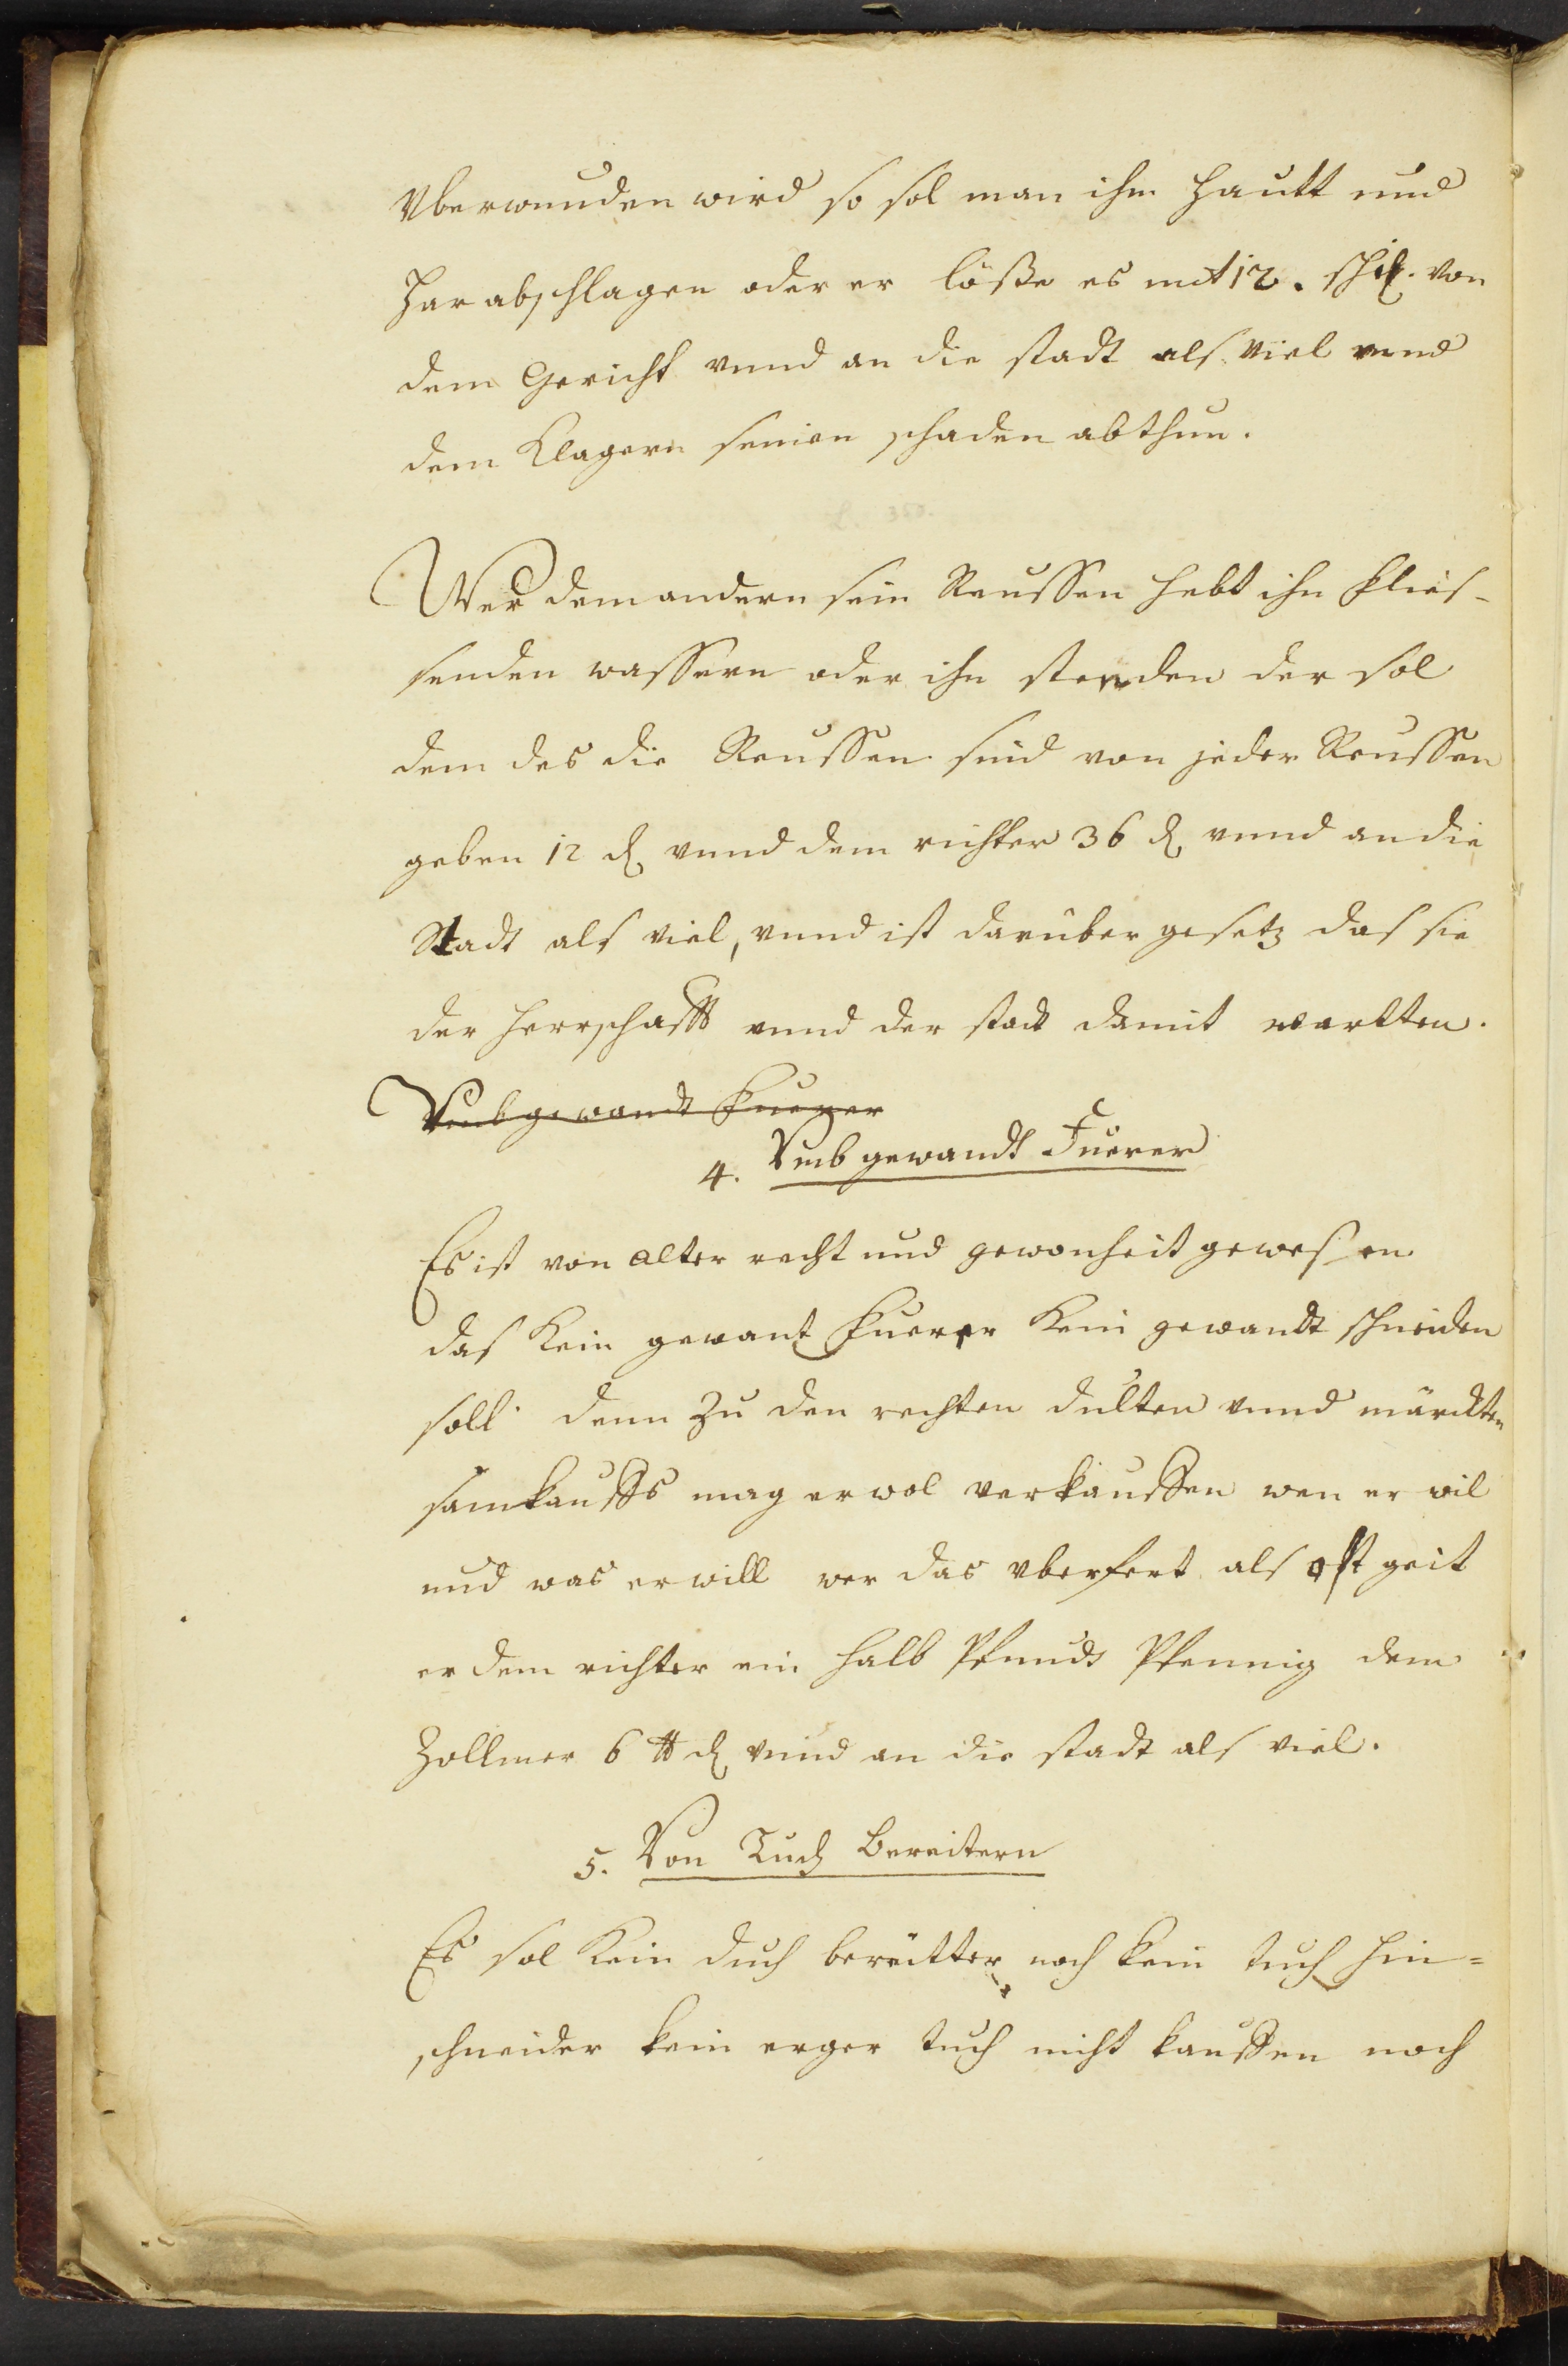 Vberwunden wird so sol man ihm Hautt und
Har abschlagen oder er löße es mit 12. schil. von
dem Gericht vnnd an die stadt als viel vnnd
dem Klagern seinen schaden abthun.
Wer dem andern sein Reussen hebt ihn flies-
senden wassern oder ihn stenden der sol
dem des die Reussen sind von jeder Reussen
geben 12 ₰ vnnd dem richter 36 ₰ vnnd an die
Stadt als viel, vnnd ist darüber gesetz das sie
der Herrschafft vnnd der stadt damit wartten.
Vmb gewandt fuerer
4. Vmb gewandt Fuerer
Es ist von alter recht und gewonheit gewesen
das kein gewant fuerer kein gewandt schneiden
soll denn zu den rechten dulten vnnd märckten
samkauffs mag er wol verkauffen wen er wil
und was er will wer das vberfert als oft geit
er dem richter ein halb Pfundt Pfennig dem
Zollmer 6 ₰ vnnd an die stadt als viel.
5. Von Tuch Bereitern
Es sol kein duch bereitter noch kein tuch hin=
schneider kein erger tuch nicht kauffen noch